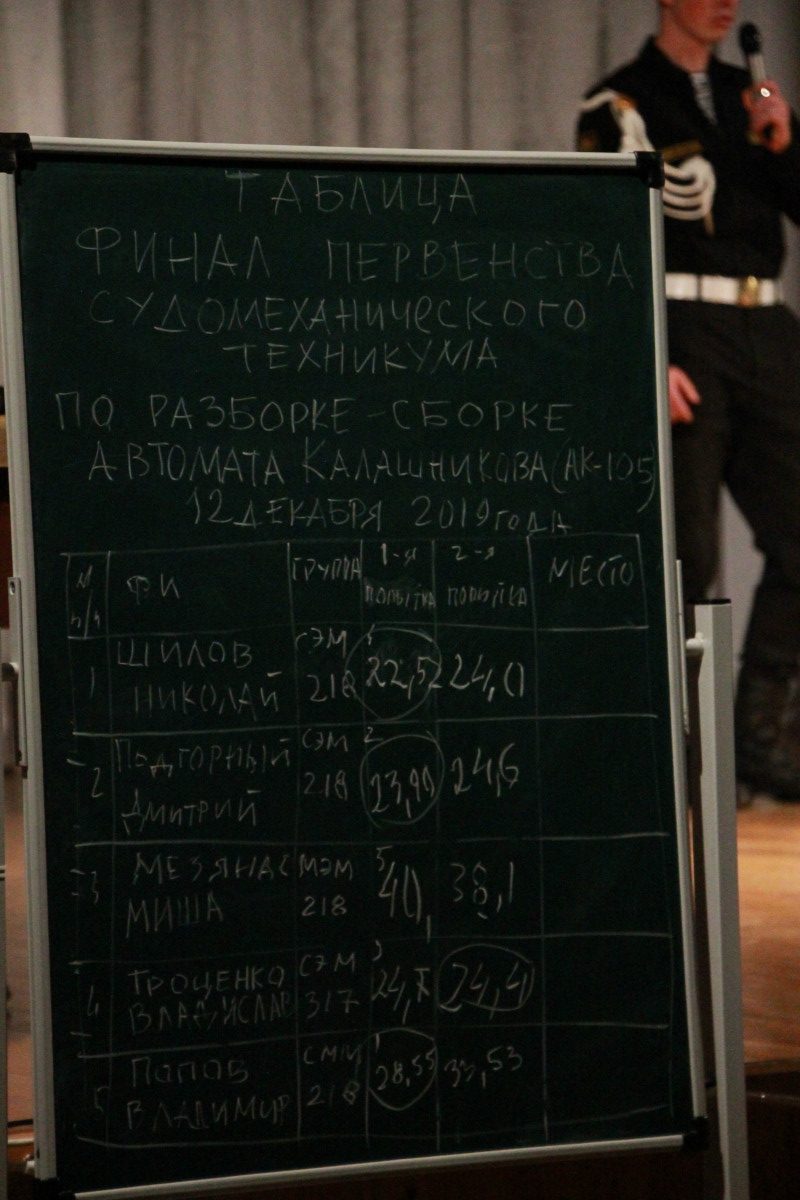 ТАБЛИЦА
ФИНАЛ ПЕРВЕНСТВА
СУДОМЕХАНИЧЕСКОГО
ТЕХНИКУМА
ПО РАЗБОРКЕ-СБОРКЕ
АВТОМАТА КАЛАШНИКОВА (АК-105)
12 ДЕКАБРЯ 2019 ГОДА
ФИ ГРУППА 1-я ПОПЫТКА 2-я ПОПЫТКА МЕСТО
1 ШИЛОВ НИКОЛАЙ СЭМ 218 22,52 24,0
2 ПОДГОРНЫЙ ДМИТРИЙ СЭМ 218 2 23,90 24,6
3 МИША МЭМ 218 5 40, 38,1
4 ТРОЦЕНКО ВЛАДИСЛАВ СЭМ 317 3 24,4
5 ПОПОВ ВЛАДИМИР 218 28,55 33,53